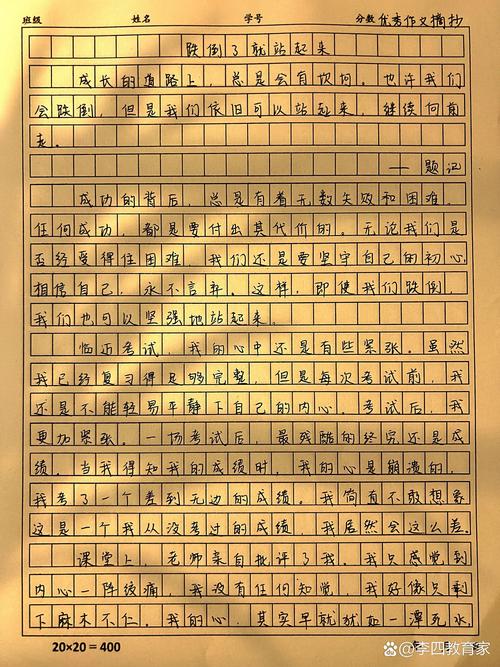 班级 姓名 学号 分数 优秀作文摘抄
跌倒了就站起来
成长的道路上，总是会有坎坷。也许我们
会跌倒，但是我们依旧可以站起来，继续向前
走。
——题记
成功的背后，总是有着无数失败和困难。
任何成功，都是要付出其代价的。无论我们是
否经受得住困难，我们还是要坚守自己的初心，
相信自己，永不言弃。这样，即使我们跌倒，
我们也可以坚强地站起来。
临近考试，我的心中还是有些紧张。虽然
我已经复习得足够完整，但是每次考试前，我
还是不能轻易平静下自己的内心。考试后，我
更加紧张。一场考试后，最残酷的终究还是成
绩。当我得知我的成绩时，我的心是崩溃的，
我考了一个差到无边的成绩。我简直不敢想象
这是一个我从没考过的成绩，我居然会这么差。
课堂上，老师亲自批评了我。我只感觉到
内心一阵绞痛，我没有任何知觉，我好像只剩
下麻木不仁。我的心，其实早就犹如一潭死水，
20×20=400
@李四教育家